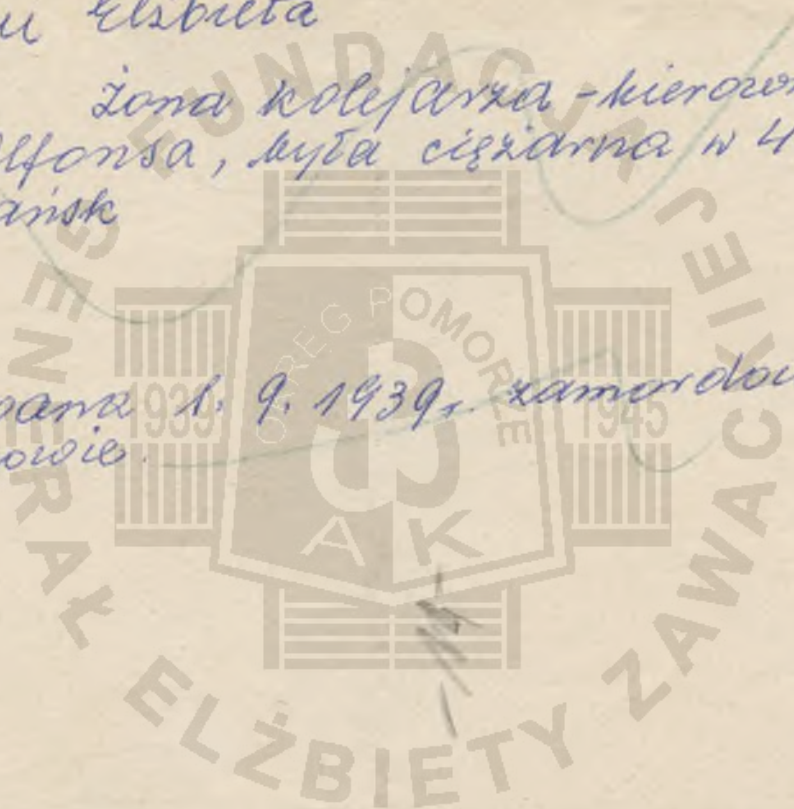 Elżbieta
żona kolejarza - kierow
lfonsa, była ciężarna w 4
ańsk
1. 9. 1939r. zamordow
owie.
FUNDACJA
GENERAŁ ELŻBIETY ZAWACKIEJ
OKRĘG POMORZE
1939 1945
AK